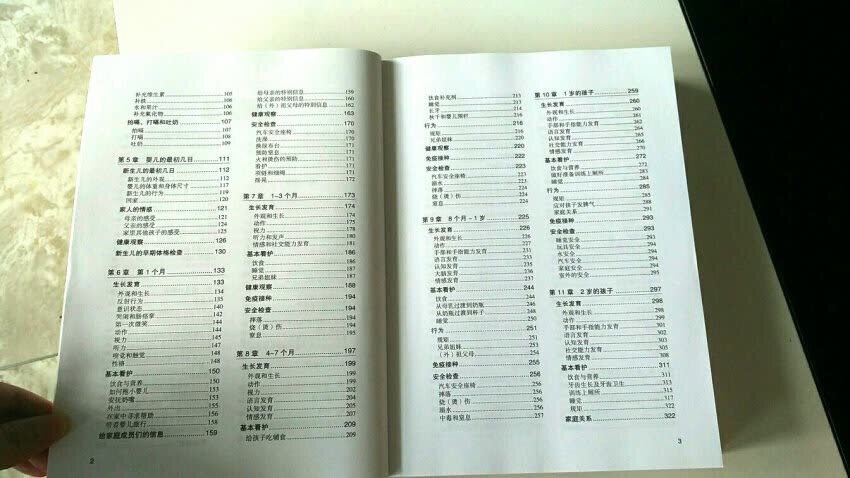 补充维生素 105
补铁 106
水和果汁 106
补充氟化物 106
拍嗝、打嗝和吐奶 107
拍嗝 107
打嗝 108
吐奶 109
第 5 章 婴儿的最初几日 111
新生儿的最初几日 112
新生儿的外观 112
婴儿的体重和身体尺寸 117
新生儿的行为 119
回家 120
家人的情感 121
母亲的感受 121
父亲的感受 124
家里其他孩子的感受 125
健康观察 126
新生儿的早期体格检查 130
第 6 章 第 1 个月 133
生长发育 133
外观和生长 133
反射行为 135
意识状态 140
哭闹和肠痉挛 142
第一次微笑 144
动作 144
视力 145
听力 147
嗅觉和触觉 148
性格 148
基本看护 150
饮食与营养 150
如何抱小婴儿 153
安抚奶嘴 153
外出 155
在家中寻求帮助 156
带着婴儿旅行 158
给家庭成员们的信息 159
2
给母亲的特别信息 159
给父亲的特别信息 160
给（外）祖父母的特别信息 162
健康观察 163
安全检查 170
汽车安全座椅 170
洗澡 170
换尿布台 171
预防窒息 171
火和烫伤的预防 171
看护 171
项链和细绳 171
摇晃 172
第 7 章 1~3 个月 173
生长发育 174
外观和生长 174
动作 175
视力 178
听力和发声 180
情感和社交能力发育 181
基本看护 186
饮食 186
睡觉 187
兄弟姐妹 187
健康观察 188
免疫接种 194
安全检查 194
摔落 194
烧（烫）伤 194
窒息 195
第 8 章 4~7 个月 197
生长发育 199
外观和生长 199
动作 199
视力 202
语言发育 204
认知发育 205
情感发育 207
基本看护 209
给孩子吃辅食 209
饮食补充剂 213
睡觉 213
长牙 214
秋千和婴儿围栏 216
行为 216
规矩 216
兄弟姐妹 218
健康观察 220
免疫接种 222
安全检查 223
汽车安全座椅 223
溺水 223
摔落 224
烧（烫）伤 224
窒息 224
第 9 章 8 个月~1 岁 225
生长发育 226
外观和生长 226
动作 227
手部和手指能力发育 231
语言发育 233
认知发育 235
大脑发育 236
情感发育 237
基本看护 244
饮食 244
从母乳过渡到奶瓶 247
从奶瓶过渡到杯子 248
睡觉 250
行为 251
规矩 251
兄弟姐妹 253
（外）祖父母 254
免疫接种 255
安全检查 256
汽车安全座椅 256
摔落 256
烧（烫）伤 256
溺水 256
中毒和窒息 257
第 10 章 1 岁的孩子 259
生长发育 260
外观和生长 260
动作 261
手部和手指能力发育 262
语言发育 263
认知发育 265
社交能力发育 266
情感发育 270
基本看护 272
饮食与营养 272
做好准备训练上厕所 283
睡觉 284
行为 285
规矩 285
应对孩子发脾气 288
家庭关系 291
免疫接种 293
安全检查 293
睡觉安全 294
玩具安全 294
水安全 294
汽车安全 294
家庭安全 294
室外的安全 295
第 11 章 2 岁的孩子 297
生长发育 298
外观和生长 298
动作 299
手部和手指能力发育 301
语言发育 302
认知发育 303
社交能力发育 305
情感发育 308
基本看护 311
饮食与营养 311
牙齿生长及牙齿卫生 313
训练上厕所 316
睡觉 317
规矩 317
家庭关系 322
3